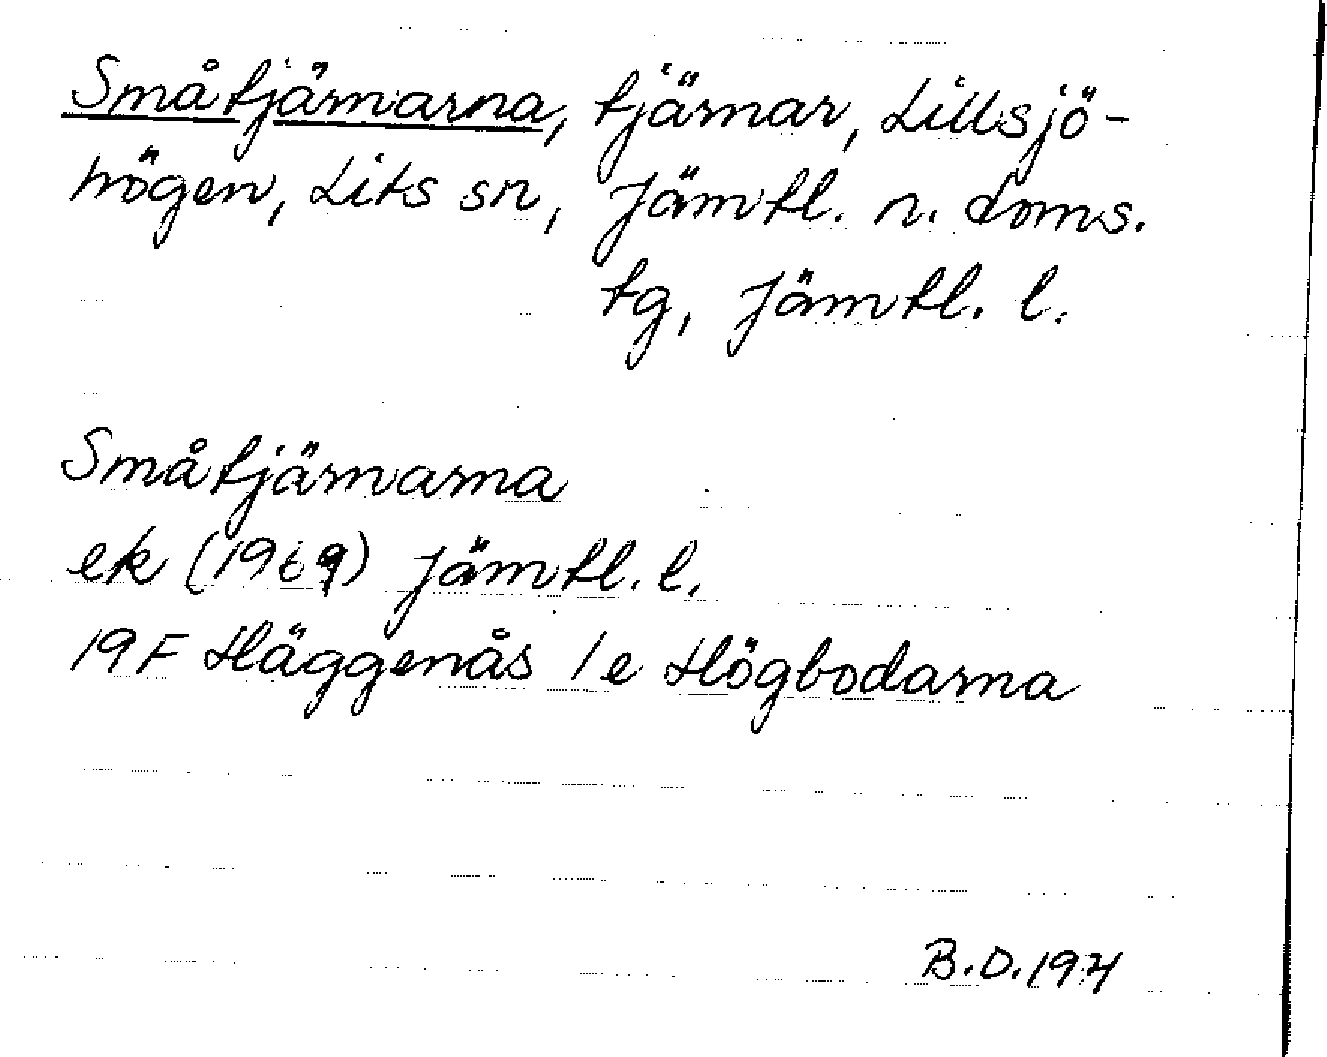 Småtjärnarna, tjärnar, Lillsjö-
högen, Lits sn, Jämtl. n. doms.
tg, Jämtl. l.
Småtjärnarna
ek (1969) Jämtl. l.
19F Häggenås 1e Högbodarna
B.D.1971